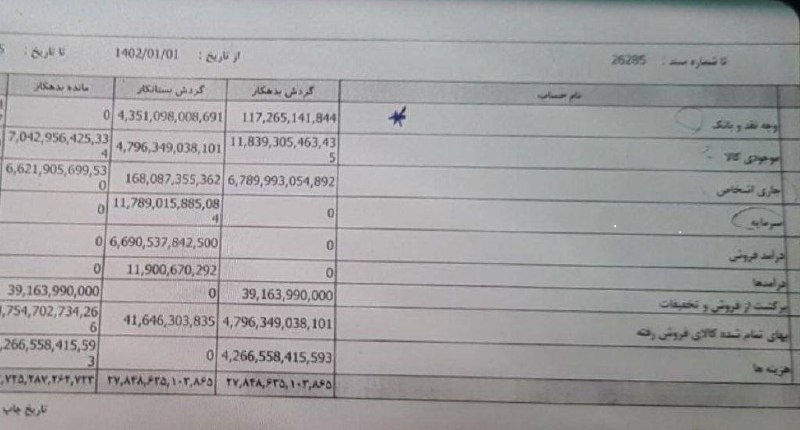 تا شماره سند : 26285 از تاریخ : 1402/01/01 تا تاریخ :
نام حساب گردش بدهکار گردش بستانکار مانده بدهکار
وجه نقد و بانک 117,265,141,844 4,351,098,008,691 0
موجودی کالا 11,839,305,463,435 4,796,349,038,101 7,042,956,425,334
جاری اشخاص 6,789,993,054,892 168,087,355,362 6,621,905,699,530
سرمایه 0 11,789,015,885,084 0
درآمد فروش 0 6,690,537,842,500 0
درآمدها 0 11,900,670,292 0
برگشت از فروش و تخفیفات 39,163,990,000 0 39,163,990,000
بهای تمام شده کالای فروش رفته 4,796,349,038,101 41,646,303,835 ,754,702,734,266
هزینه ها 4,266,558,415,593 0 ,266,558,415,593
۲۷,۸۴۸,۶۳۵,۱۰۳,۸۶۵ ۲۷,۸۴۸,۶۳۵,۱۰۳,۸۶۵ ,۷۲۵,۲۸۷,۲۶۴,۷۲۳
تاریخ چاپ